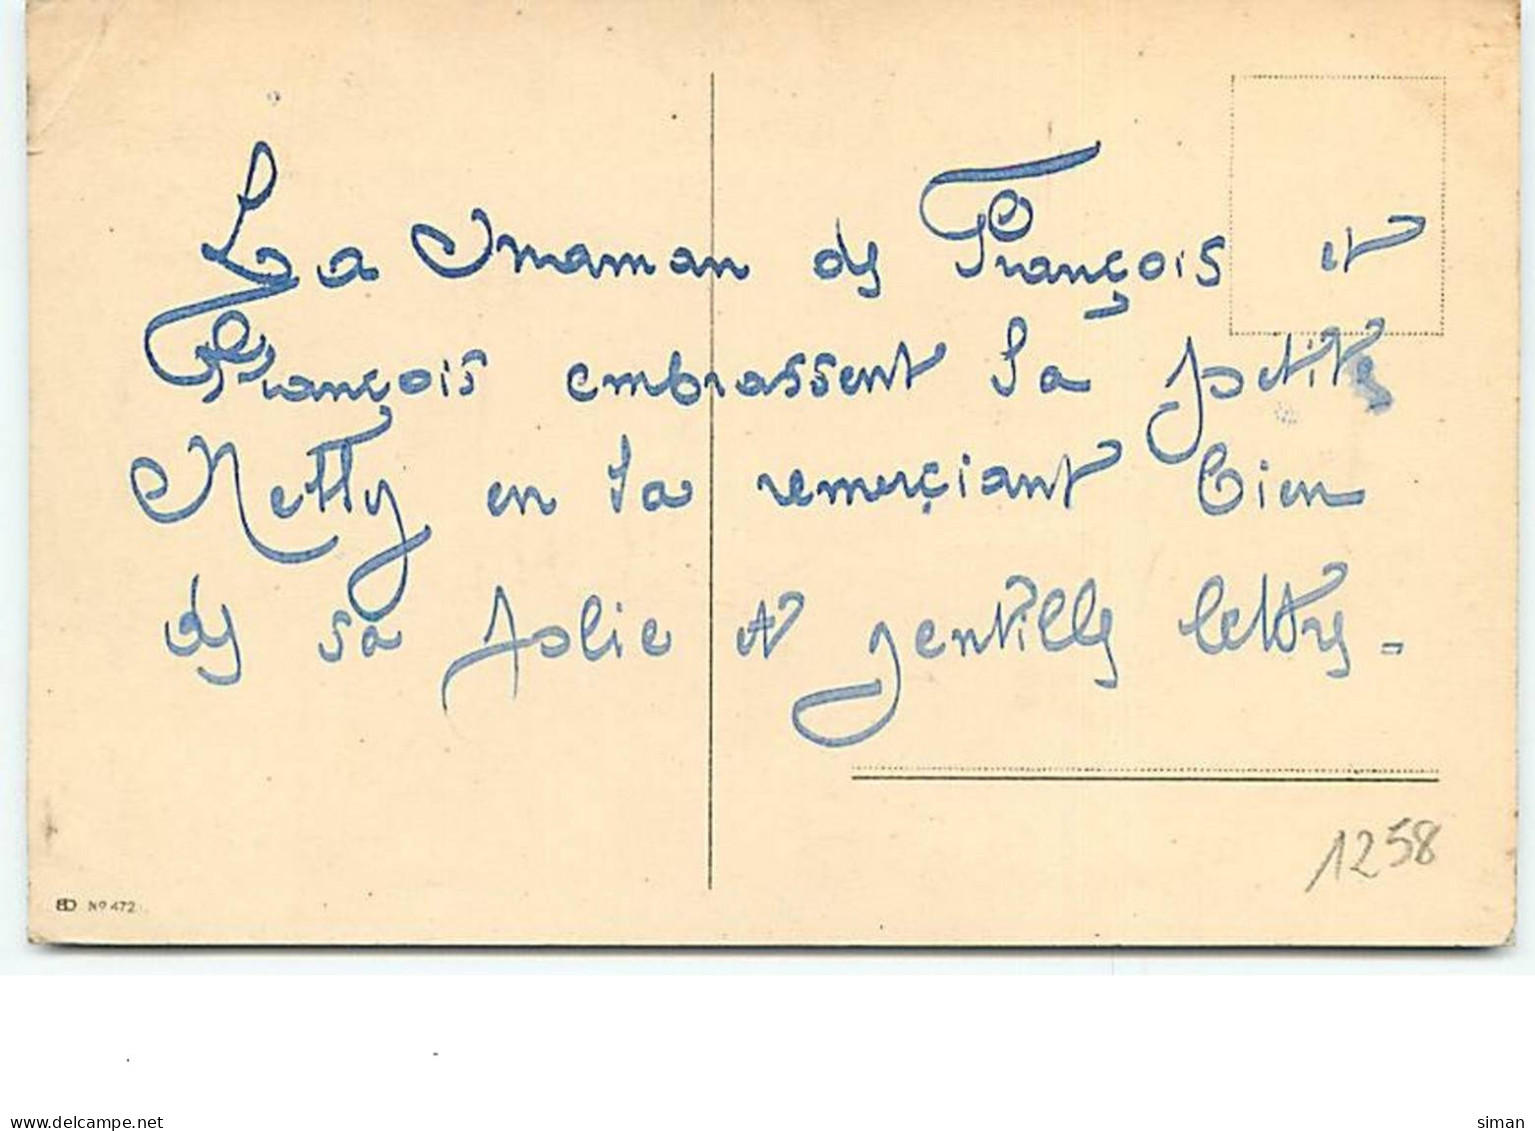 La Maman de François et
François embrassent la petite
Netty en la remerçiant bien
de sa jolie et gentille lettre -
1258
BD No 472
delcampe.net
siman